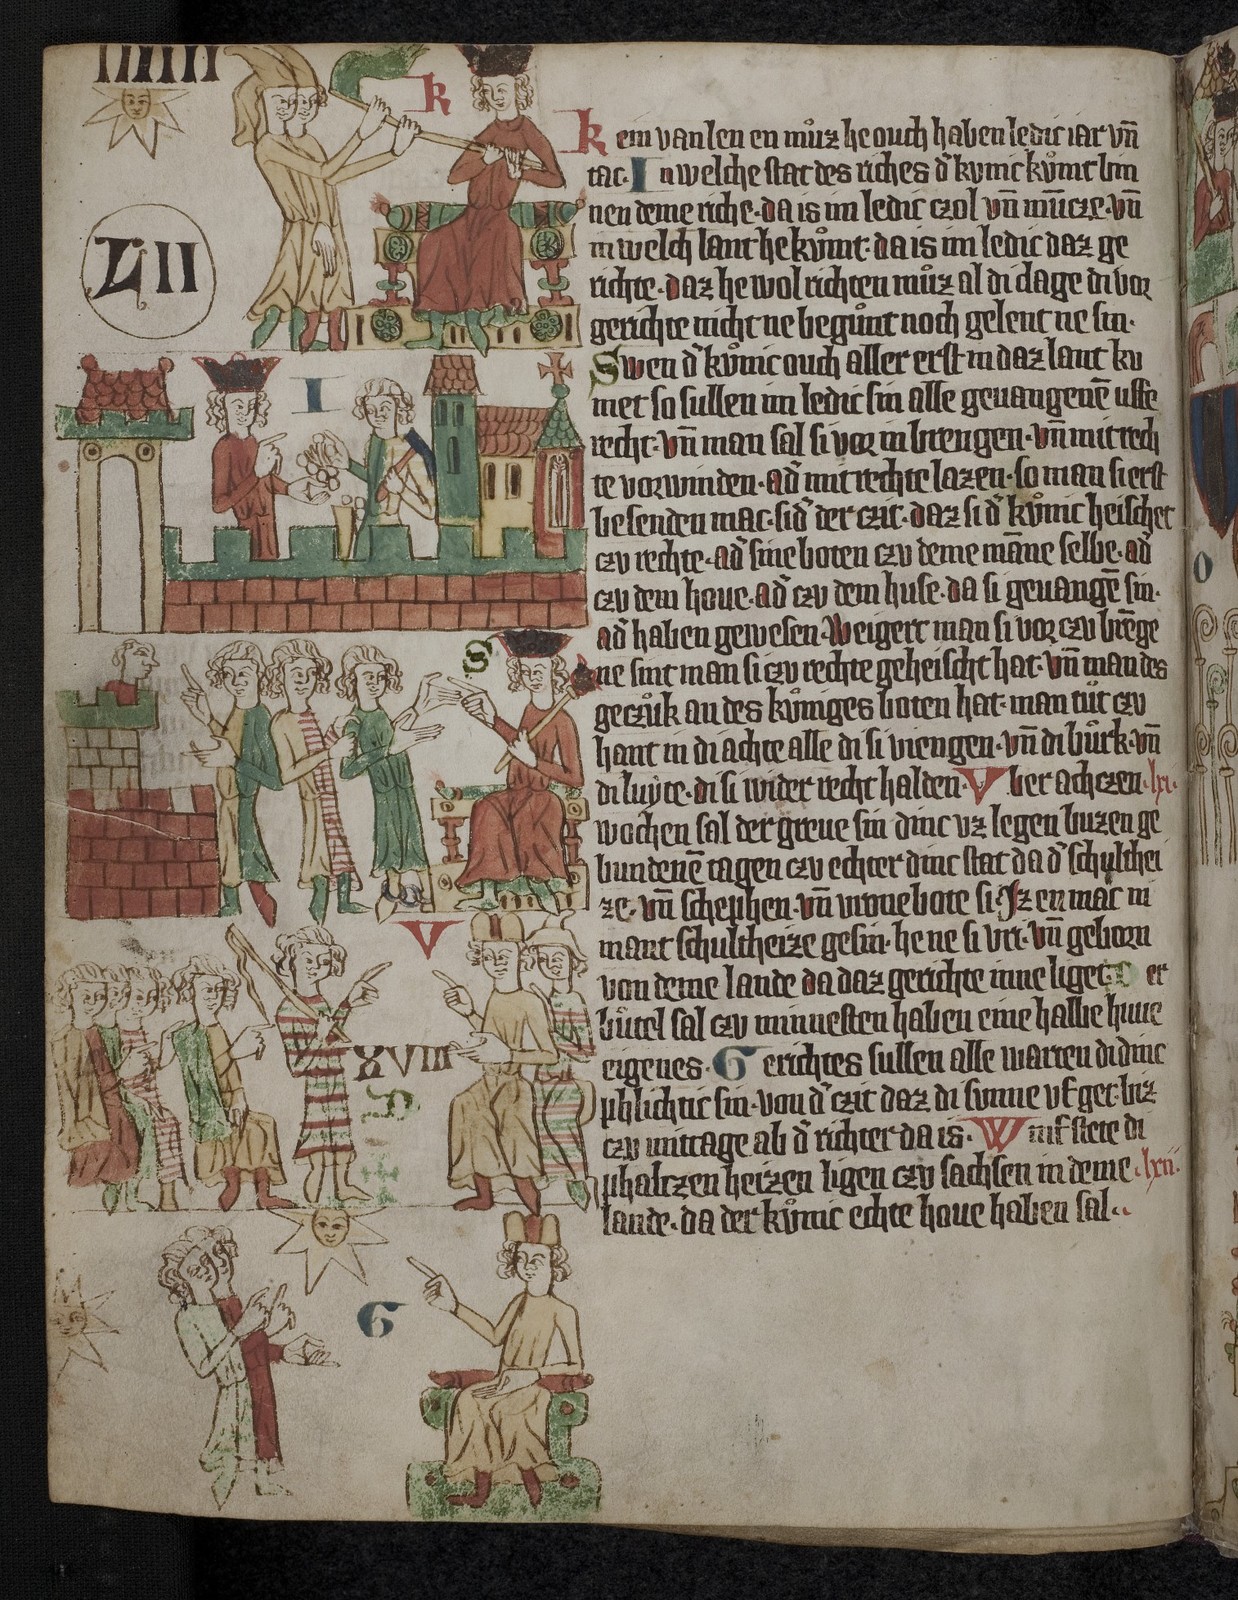 IIIIII
k
LII
I
S
V
XVIII
D
G
kein vanlen en můz he ouch haben ledic iar vn̄
tac· In welche stat des riches d̕ kvnic kůmt bin
nen deme riche· da is im ledic czol vn̄ mu̅cze· vn̄
in welch lant he kůmt· da is im ledic daz ge
richte· daz he wol richten můz al di clage di vor
gerichte nicht ne begůnt noch gelent ne sin·
Swen d̕ kůnic ouch aller erst in daz lant ku
met so sullen im ledic sin alle geuangene̅ uffe
recht· vn̄ man sal si vor in brengen· vn̄ mit rech
te vorwinden· ad̕ mit rechte lazen· so man si erst
besenden mac· sid̕ der czit· daz si d̕ kůnic heischet
czv rechte· ad̕ sine boten czv deme ma̅ne selbe· ad̕
czv dem houe· ad̕ czv dem huse· da si geuange̅ sin·
ad̕ haben gewesen· Weigert man si vor czv bre̅ge
ne sint man si czv rechte geheischt hat· vn̄ man des
geczůk an des kůniges boten hat· man tůt czv
hant in di achte alle di si viengen· vn̄ di bůrk· vn̄
di luyte· di si wider recht halden· Vber achczen ·lxi·
wochen sal der greue sin dinc vz legen buzen ge
bundene̅ tagen czv echter dinc stat da d̕ schulthei
ze· vn̄ schephen· vn̄ vronebote si· Iz en mac ni
mant schultheize gesin· he ne si vri· vn̄ geborn
von deme lande da daz gerichte inne liget· Der
bůtel sal czv minnesten haben eine halbe huue
eigenes· Gerichtes sullen alle warten di dinc
phlichtic sin· von d̕ czit daz di sunne vf get· biz
czv mittage ab d̕ richter da is· Wnif stete di
phalczen heizen ligen czv sachsen in deme ·lxii·
lande· da der kůnic echte houe haben sal··